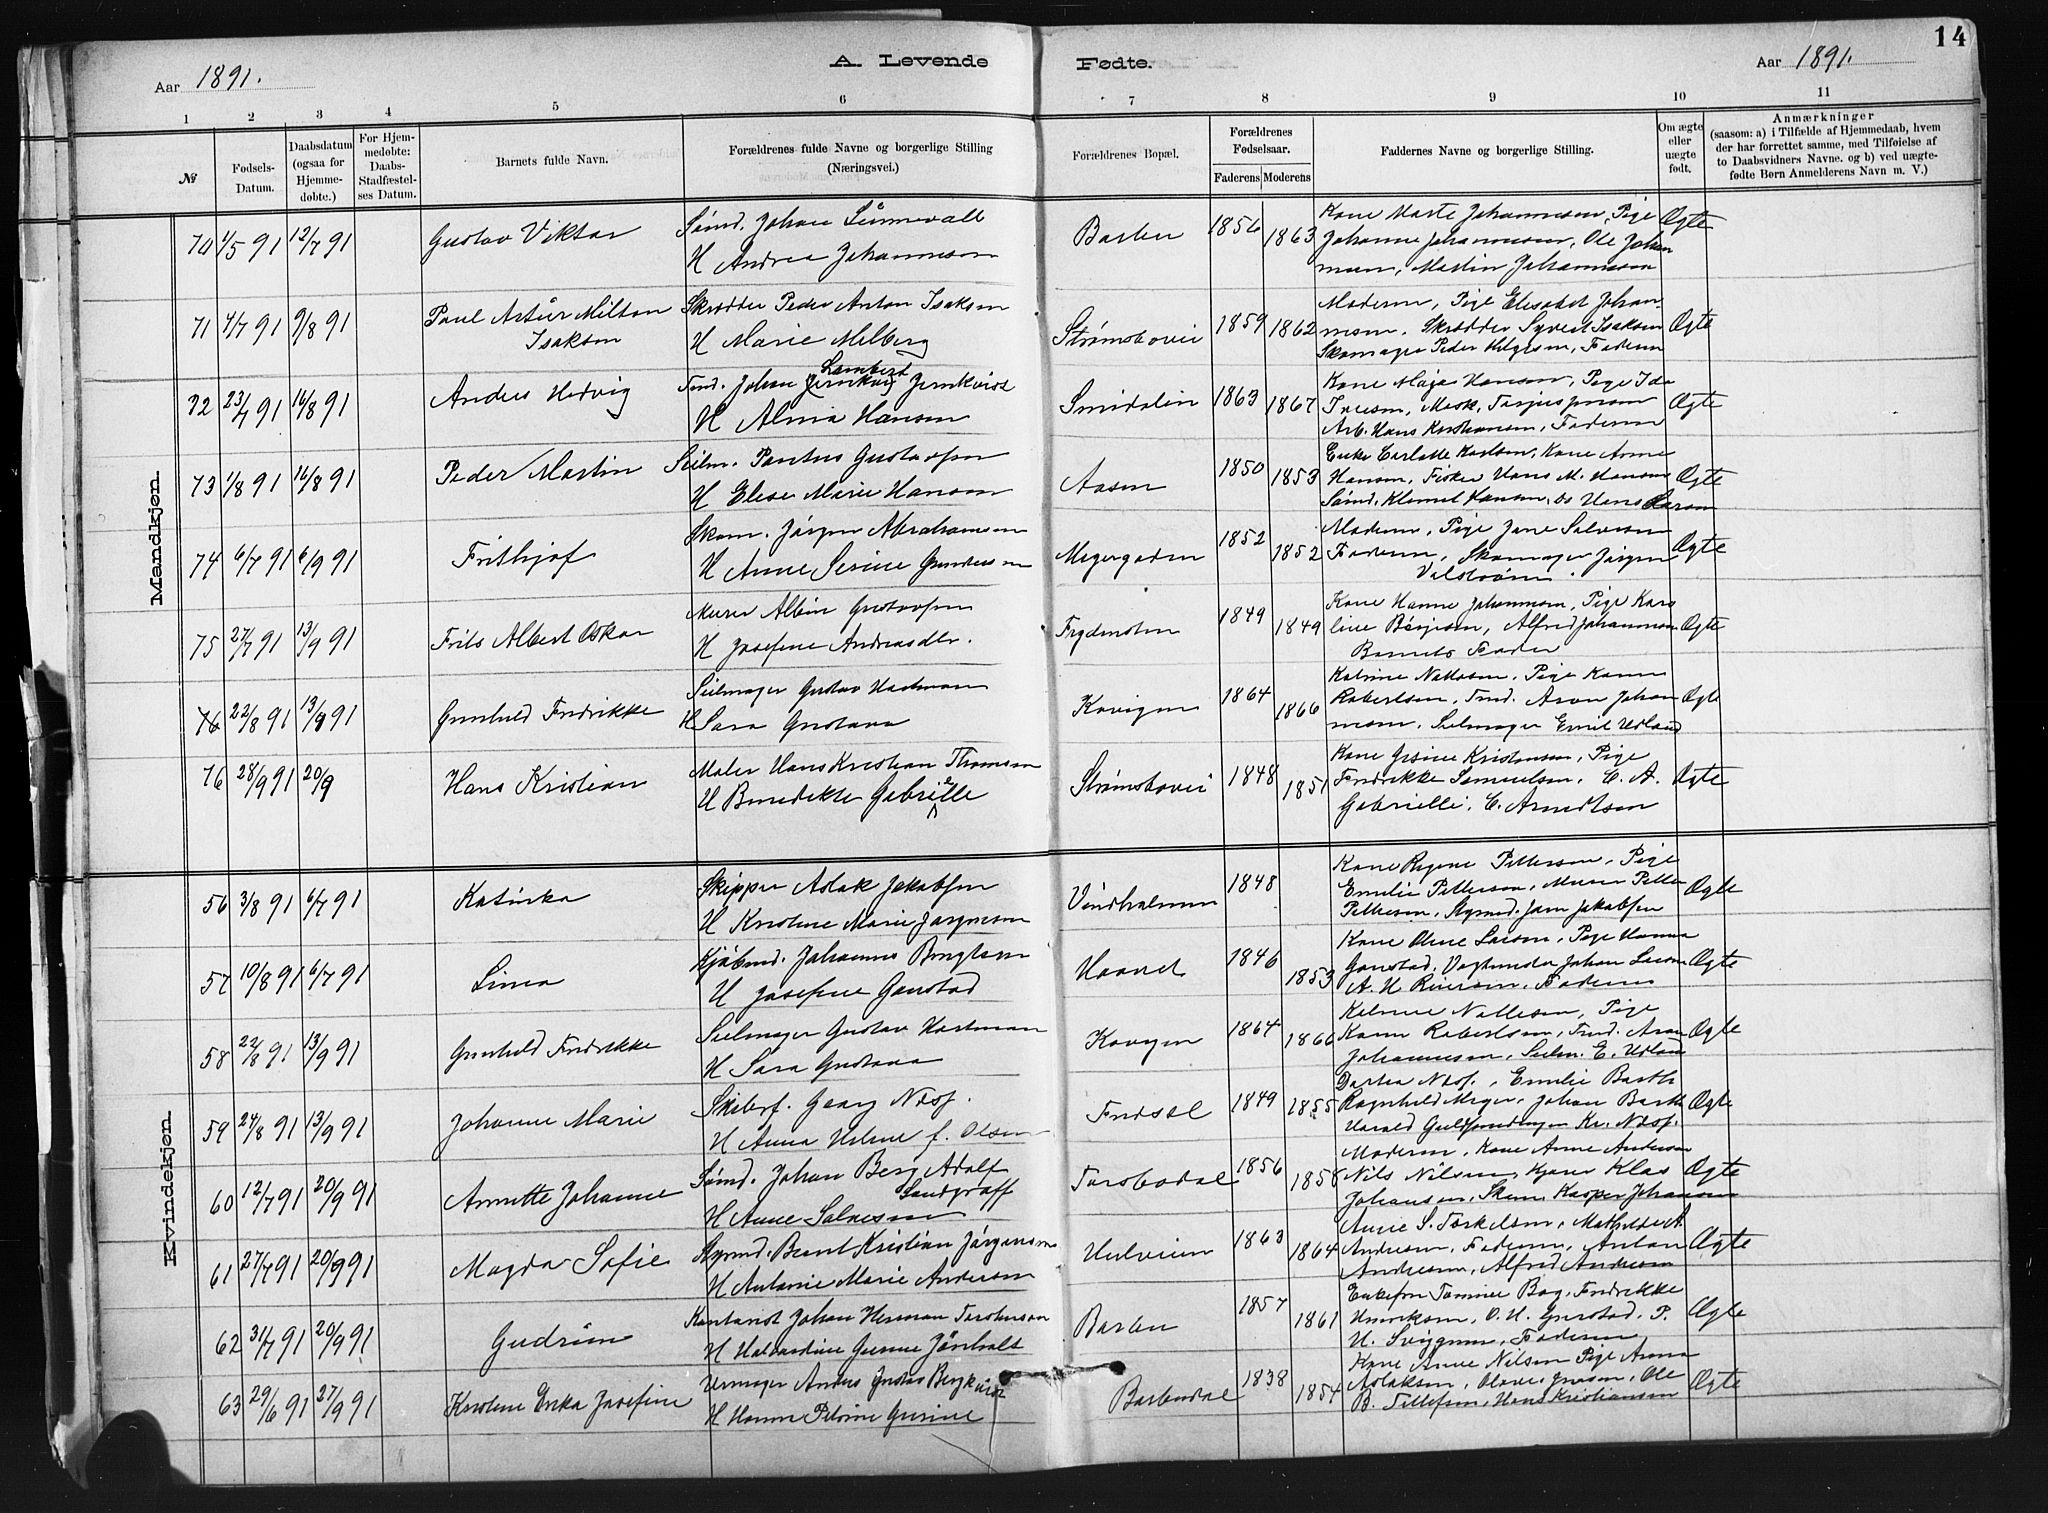 14
Aar 1891.
A. Levende Fødte.
Aar 1891.
1 2 3 4 5 6 7 8 9 10 11
№
Fødsels-Datum.
Daabsdatum (ogsaa for Hjemme-døbte.)
For Hjem-medøbte: Daabs-Stadfæstel-ses Datum.
Barnets fulde Navn.
Forældrenes fulde Navne og borgerlige Stilling
(Næringsvei.)
Forældrenes Bopæl.
Forældrenes Fødselsaar.
Faderens Moderens
Faddernes Navne og borgerlige Stilling.
Om ægte eller uægte født.
Anmærkninger
(saasom: a) i Tilfælde af Hjemmedaab, hvem
der har forrettet samme, med Tilføielse af
to Daabsvidners Navne. og b) ved uægte-
fødte Børn Anmelderens Navn m. V.)
Mandkjøn.
70 1/5 91 12/7 91 Gustav Viktor
Sømd. Johan
H Andrea Johannesen
Barbu 1856 1863
Kone Marte Johannesen, Pige
Johanne Johannesen, Ole Johan
nesen, Martin Johannesen
Ægte
71 4/7 91 9/8 91 Paul Artur Milton
Isaksen
Skrædder Peder Anton Isaksen
H Marie Milberg
Strømsbovei 1859 1862
Moderen, Pige Elisabet Johan-
nesen, Skrædder Syvert Isaksen
Skomager Peder Helgesen, Faderen
Ægte
72 23/7 91 16/8 91 Anders Hedvig
Tmd. Johan Lambert Jernkvist
H Alma Hansen
Smidalen 1863 1867
Kone Maja Hansen, Pige Ida
Iversen, Mask. Torjus
Arb. Hans Kristiansen, Faderen
Ægte
73 1/8 91 16/8 91 Peder Martin
Seilm. Pontus Gustavsen
H Elise Marie Hansen
Aasen 1850 1853
Enke Carlotte Karlsen, Kone Anne
Hansen, Fisker Hans M. Hansen
Sømd. Klemet Hansen, do Hans Larsen
Ægte
74 6/7 91 6/9 91 Frithjof
Skom. Jørgen Abrahamsen
H Anne Serine Gundersen
Meyergaden 1852 1852
Moderen, Pige Jane Salvesen
Faderen, Skomager Jørgen
Valstrøm.
Ægte
75 27/7 91 13/9 91 Frits Albert Oskar
Murer Albin Gustavsen
H Josefine Andreasdtr.
Frydensten 1849 1849
Kone Hanne Johannesen, Pige Karo
line Børjesen, Alfred Johannesen
Barnets Fader
Ægte
76 22/8 91 13/9 91 Gunhild Fredrikke
Seilmager Gustav Hartman
H Sara Gustava
Kovigen 1864 1866
Katrine Nattesen, Pige Karen
Robertsen, Tmd. Aron Johan
nesen, Seilmager Emil Udland
Ægte
76 28/9 91 20/9 Hans Kristian
Maler Hans Kristian Thomsen
H Benedikte Gabrielle
Strømsbovei 1848 1851
Kone Gesine Kristensen, Pige
Fredrikke Samuelsen, C. A.
Gabrielli, C. Arndtsen
Ægte
Kvindekjøn.
56 3/8 91 6/7 91 Katinka
Skipper Aslak Jakobsen
H Kristine Marie Jørgensen
Vindholmen 1848
Kone Regine Pettersen, Pige
Emilie Pettersen, Murer Petter
Pettersen, Styrmd. Jam Jakobsen
Ægte
57 10/8 91 6/7 91 Sima
Kjøbmd. Johannes Bengtsen
H Josefine Gonstad
Haavet 1846 1853
Kone Oline Larsen, Pige Hanna
Gonstad, Johan Larsen
A. H. Reiersen, Faderen
Ægte
58 22/8 91 13/9 91 Gunhild Fredrikke
Seilmager Gustav Hartman
H Sara Gustava
Kovigen 1864 1866
Katrine Nattesen, Pige
Karen Robertsen, Tmd. Aron
Johannesen, Seilm. E. Udland
Ægte
59 24/8 91 13/9 91 Johanne Marie
Skibsf. Georg Næss.
H Anna Helene f. Olsen
Fredsøl 1849 1855
Dorthea Næss., Emilie Barth
Ragnhild Meyer, Johan Barth
Harald Kr. Næss.
Ægte
60 12/7 91 20/9 91 Annette Johanne
Sømd. Johan Berg Adolf
Sandgraff
H Anne Salvesen
Torsbodal 1856 1858
Moderen, Kone Anne Andersen
Nils Nilsen, Klas
Johansen, Skom. Kasper Johansen
Ægte
61 27/7 91 20/9 91 Magda Sofie
Styrmd. Bernt Kristian Jørgensen
H Antonie Marie Andersen
Uulveien 1863 1864
Anne S. Torkelsen, Mathilde A.
Andresen, Faderen, Anton
Andresen, Alfred Andresen
Ægte
62 31/7 91 20/9 91 Gudrun
Kontorist Johan Herman Torstensen
H Halvardine Gurine Jönholt
Barbu 1857 1861
Enkefru Tomine Bag, Fredrikke
Henriksen, O. H. Gjerstad, P.
H. Sviggum, Faderen
Ægte
63 29/6 91 27/9 91 Kristine Erika Josefine
Urmager Anders Gustav Bergkvist
H Hanna Petrine Gurine
Barbudal 1838 1854
Kone Anne Nilsen, Pige Anna
Aslaksen, Olaves, Ole
B. Tellefsen, Hans Kristiansen
Ægte